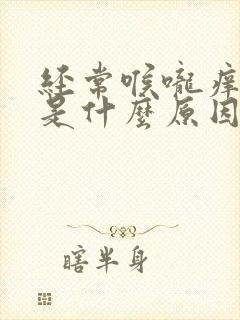 经常喉嚨痒
是什麼原因
瞎半身